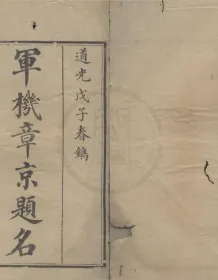 道光戊子春鐫
軍機章京題名